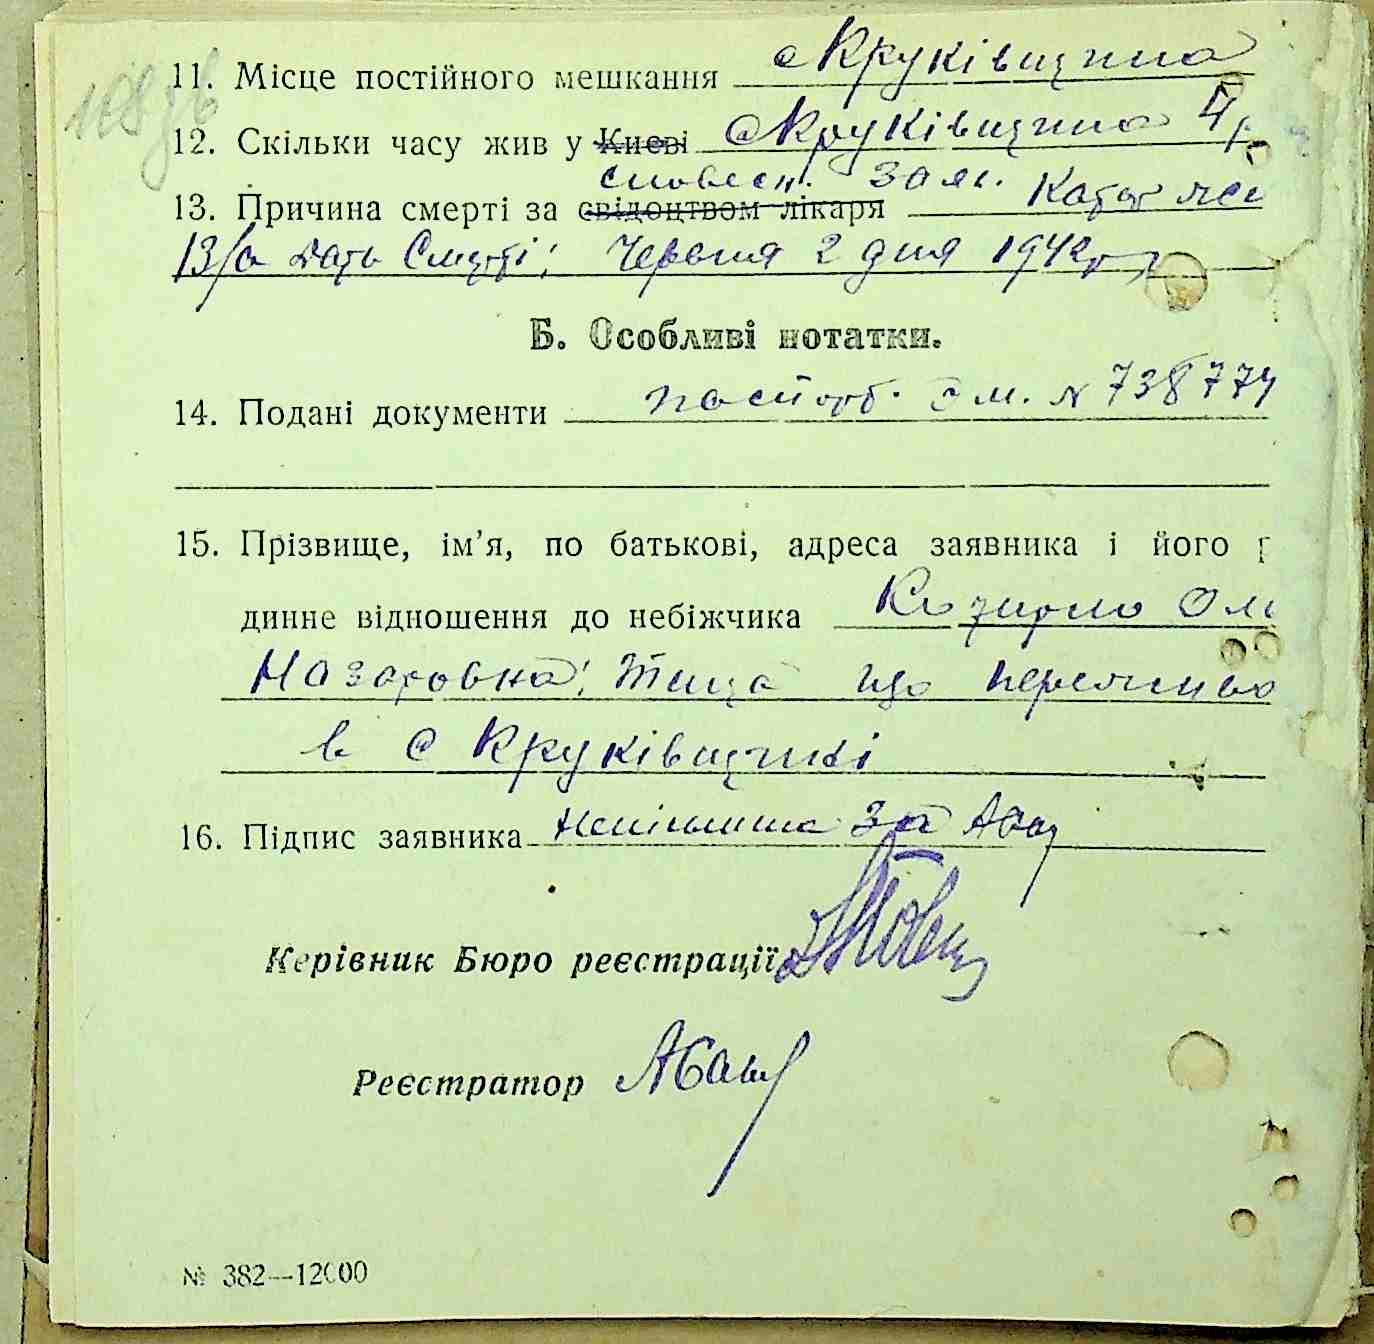 11. Місце постійного мешкання с Крукívщина
12. Скільки часу жив у Києві с Круківщина 4 р
словесн. заяв.
13. Причина смерті за свідоцтвом лікаря Катар
13/а Дата Смерті: Червня 2 дня 1942 р
Б. Особливі нотатки.
14. Подані документи паспорт. ом. N 738774
15. Прізвище, ім'я, по батькові, адреса заявника і його р
динне відношення до небіжчика
Назаровна; Теща що
в с Круківщині
16. Підпис заявника неписьменна за
Керівник Бюро реєстрації
Реєстратор
№ 382—12000